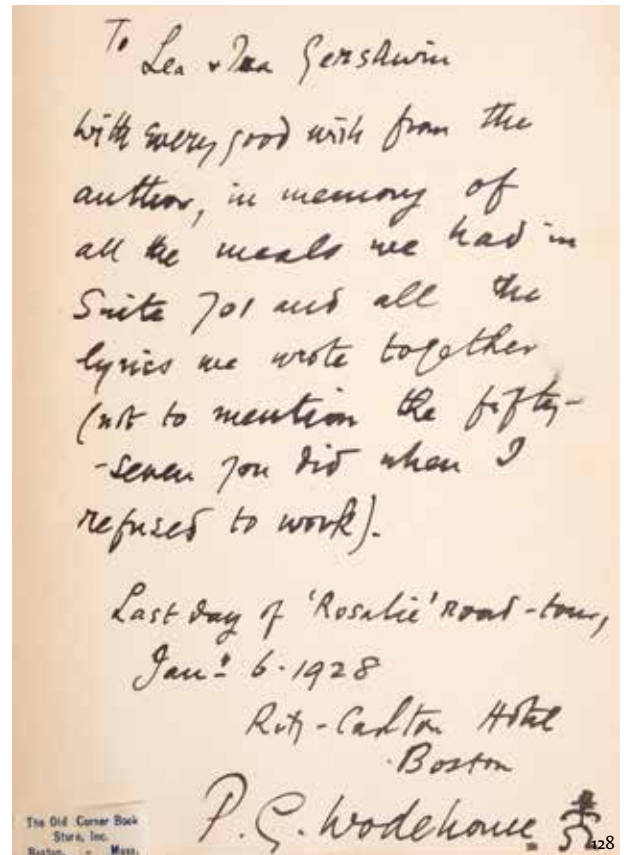 To Lea & Ira Gershwin
with every good wish from the
author, in memory of
all the meals we had in
Suite 701 and all the
lyrics we wrote together
(not to mention the fifty-
-seven you did when I
refused to work).
Last day of 'Rosalie' road-tour,
Jan: 6. 1928
Ritz-Carlton Hotel
Boston
P. G. Wodehouse
The Old Corner Book
Store, Inc.
Boston, - Mass.
128